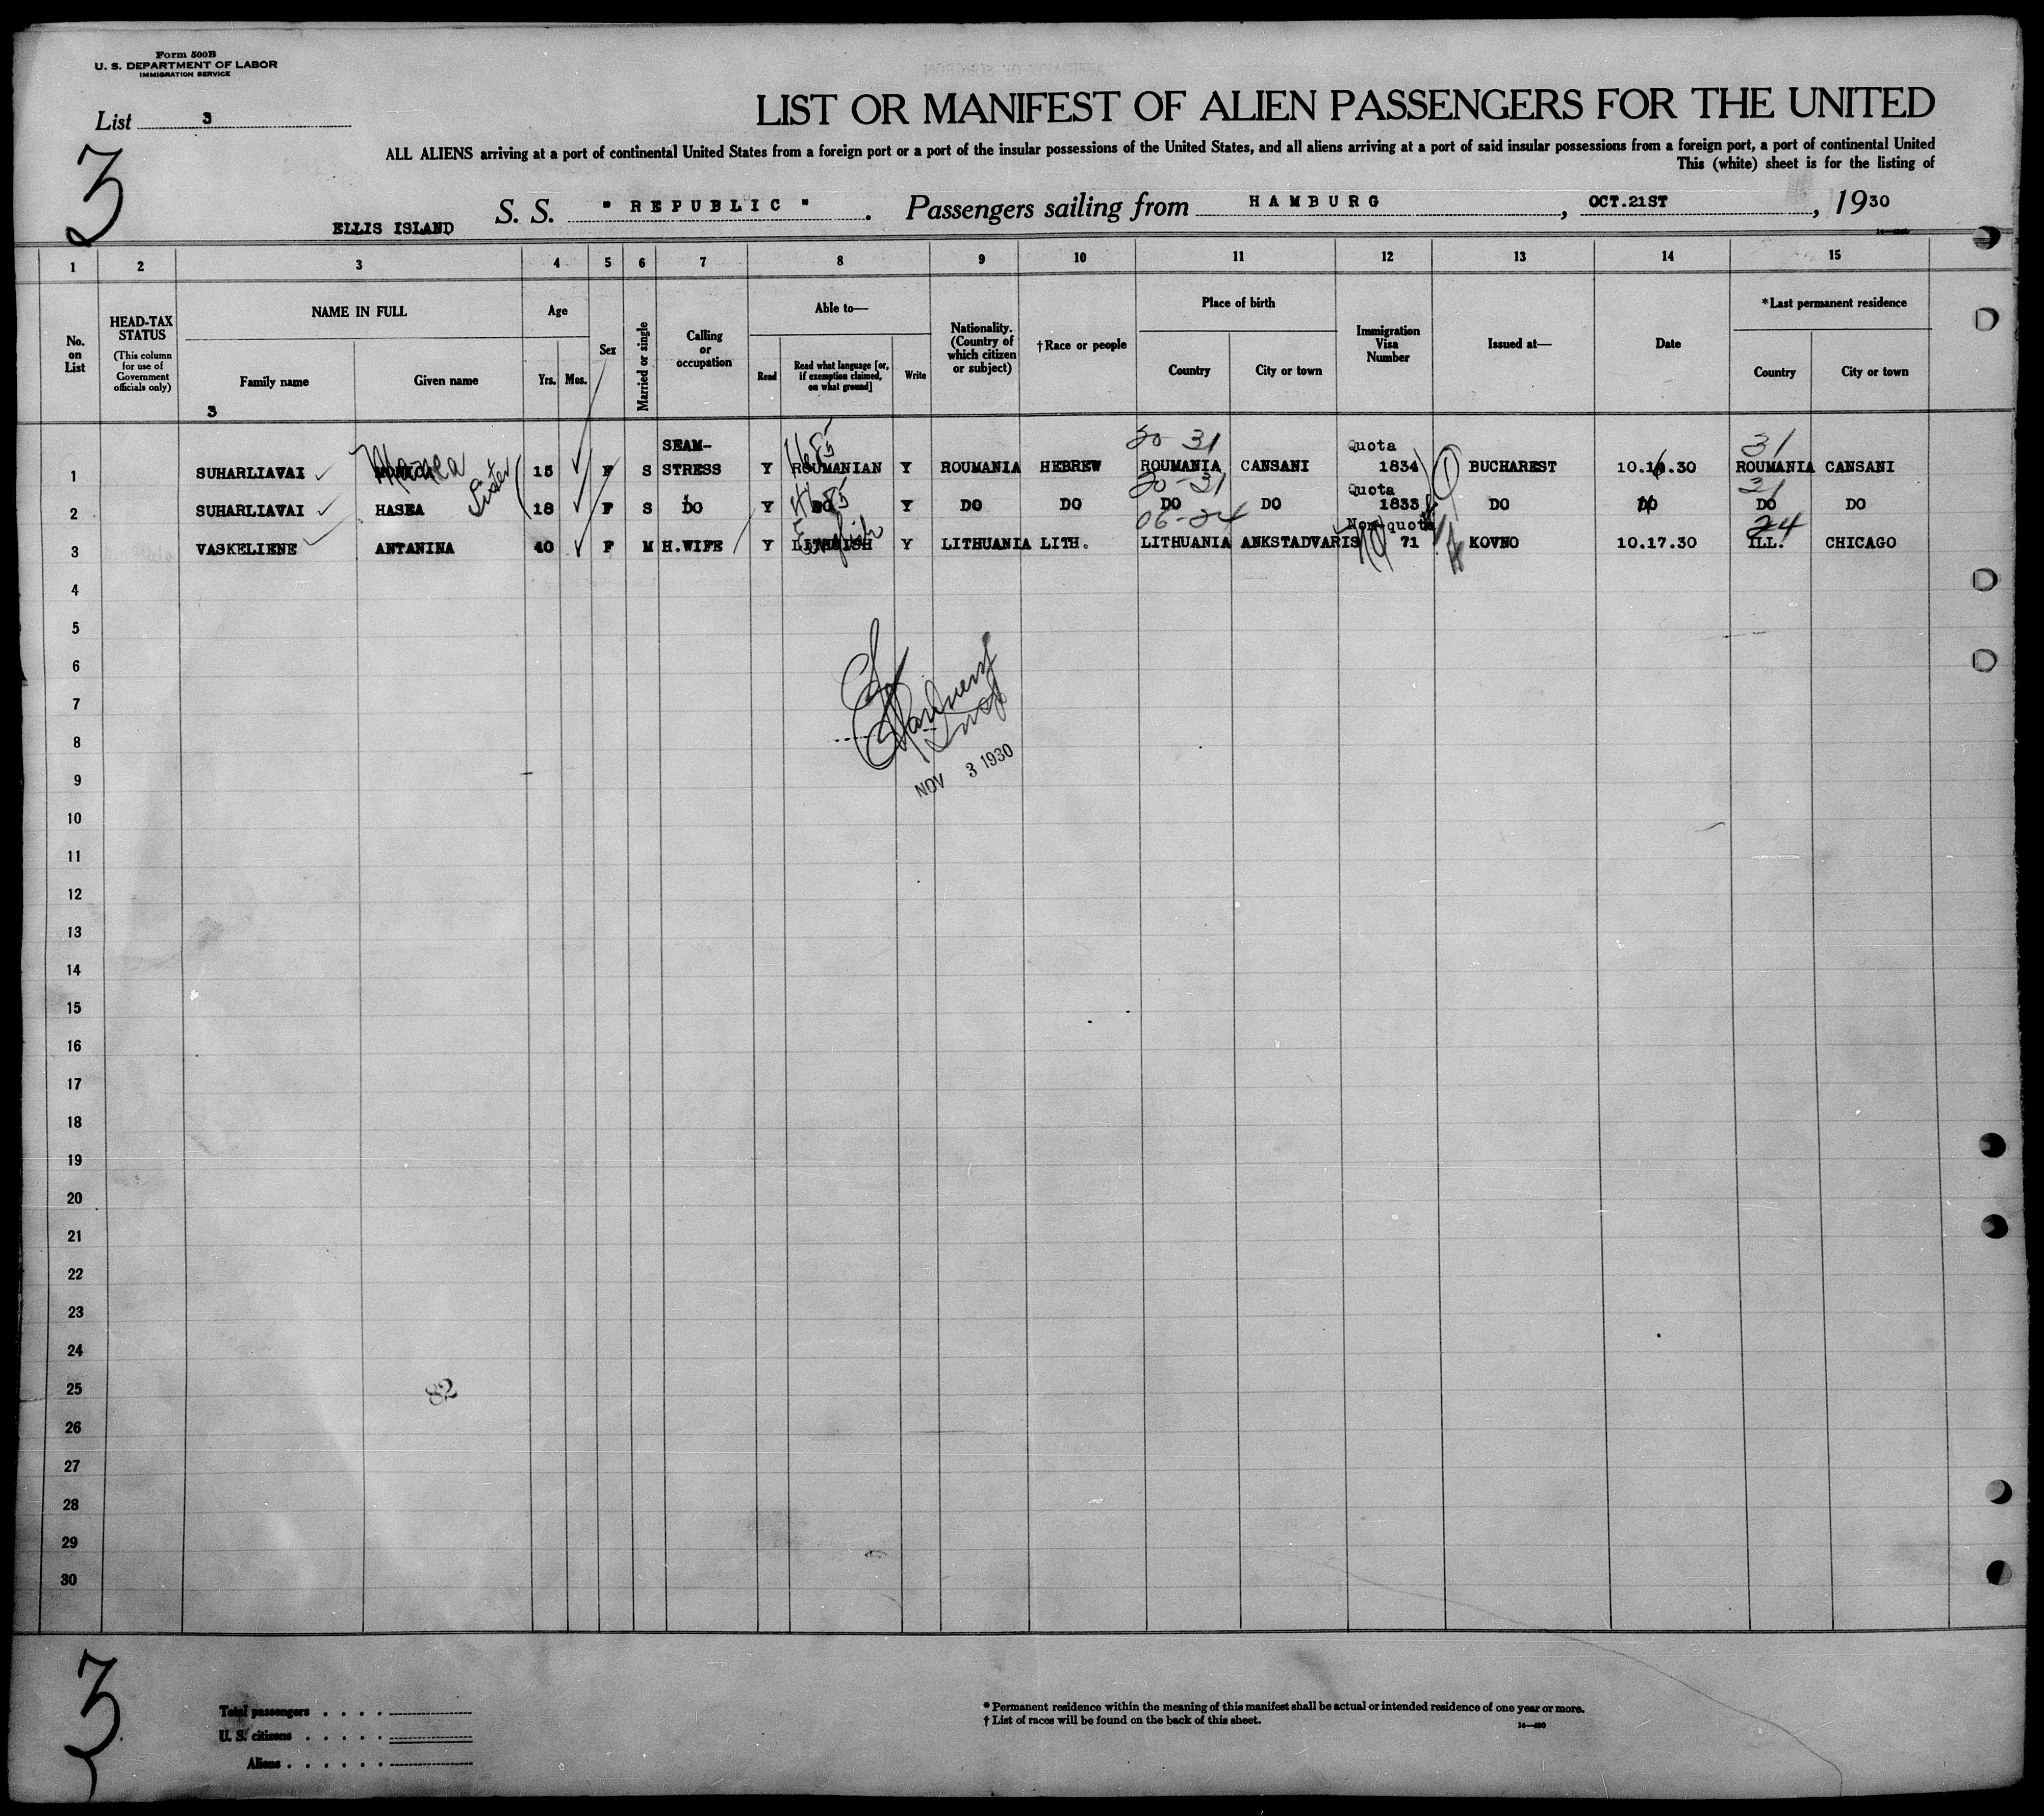 Form 500B
U. S. DEPARTMENT OF LABOR
IMMIGRATION SERVICE
List 3
3
LIST OR MANIFEST OF ALIEN PASSENGERS FOR THE UNITED
ALL ALIENS arriving at a port of continental United States from a foreign port or a port of the insular possessions of the United States, and all aliens arriving at a port of said insular possessions from a foreign port, a port of continental United
This (white) sheet is for the listing of
ELLIS ISLAND S. S. " REPUBLIC " . Passengers sailing from HAMBURG , OCT.21ST , 1930
1 2 3 4 5 6 7 8 9 10 11 12 13 14 15
No. on List
HEAD-TAX STATUS (This column for use of Government officials only)
NAME IN FULL
Family name
Given name
3
Age
Yrs. Mos.
Sex
Married or single
Calling or occupation
Able to—
Read
Read what language [or, if exemption claimed, on what ground]
Write
Nationality. (Country of which citizen or subject)
†Race or people
Place of birth
Country
City or town
Immigration Visa Number
Issued at—
Date
*Last permanent residence
Country
City or town
SEAM- 20-31 Quota 31
1 SUHARLIAVAI Sister 15 F S STRESS Y ROUMANIAN Y ROUMANIA HEBREW ROUMANIA CANSANI 1834 BUCHAREST ROUMANIA CANSANI
20-31 Quota 31
2 SUHARLIAVAI HASEA 18 F S DO Y DO Y DO DO DO DO 1833 DO DO DO DO
06-24 Non-quota 24
3 VASKELIENE ANTANINA 40 F M H.WIFE Y English Y LITHUANIA LITH. LITHUANIA ANKSTADVARIS 71 KOVNO 10.17.30 ILL. CHICAGO
4
5
6
7
8
9
NOV 3 1930
10
11
12
13
14
15
16
17
18
19
20
21
22
23
24
25
82
26
27
28
29
30
3
Total passengers . . . .
U. S. citizens . . . . .
Aliens . . . . . .
* Permanent residence within the meaning of this manifest shall be actual or intended residence of one year or more.
† List of races will be found on the back of this sheet.